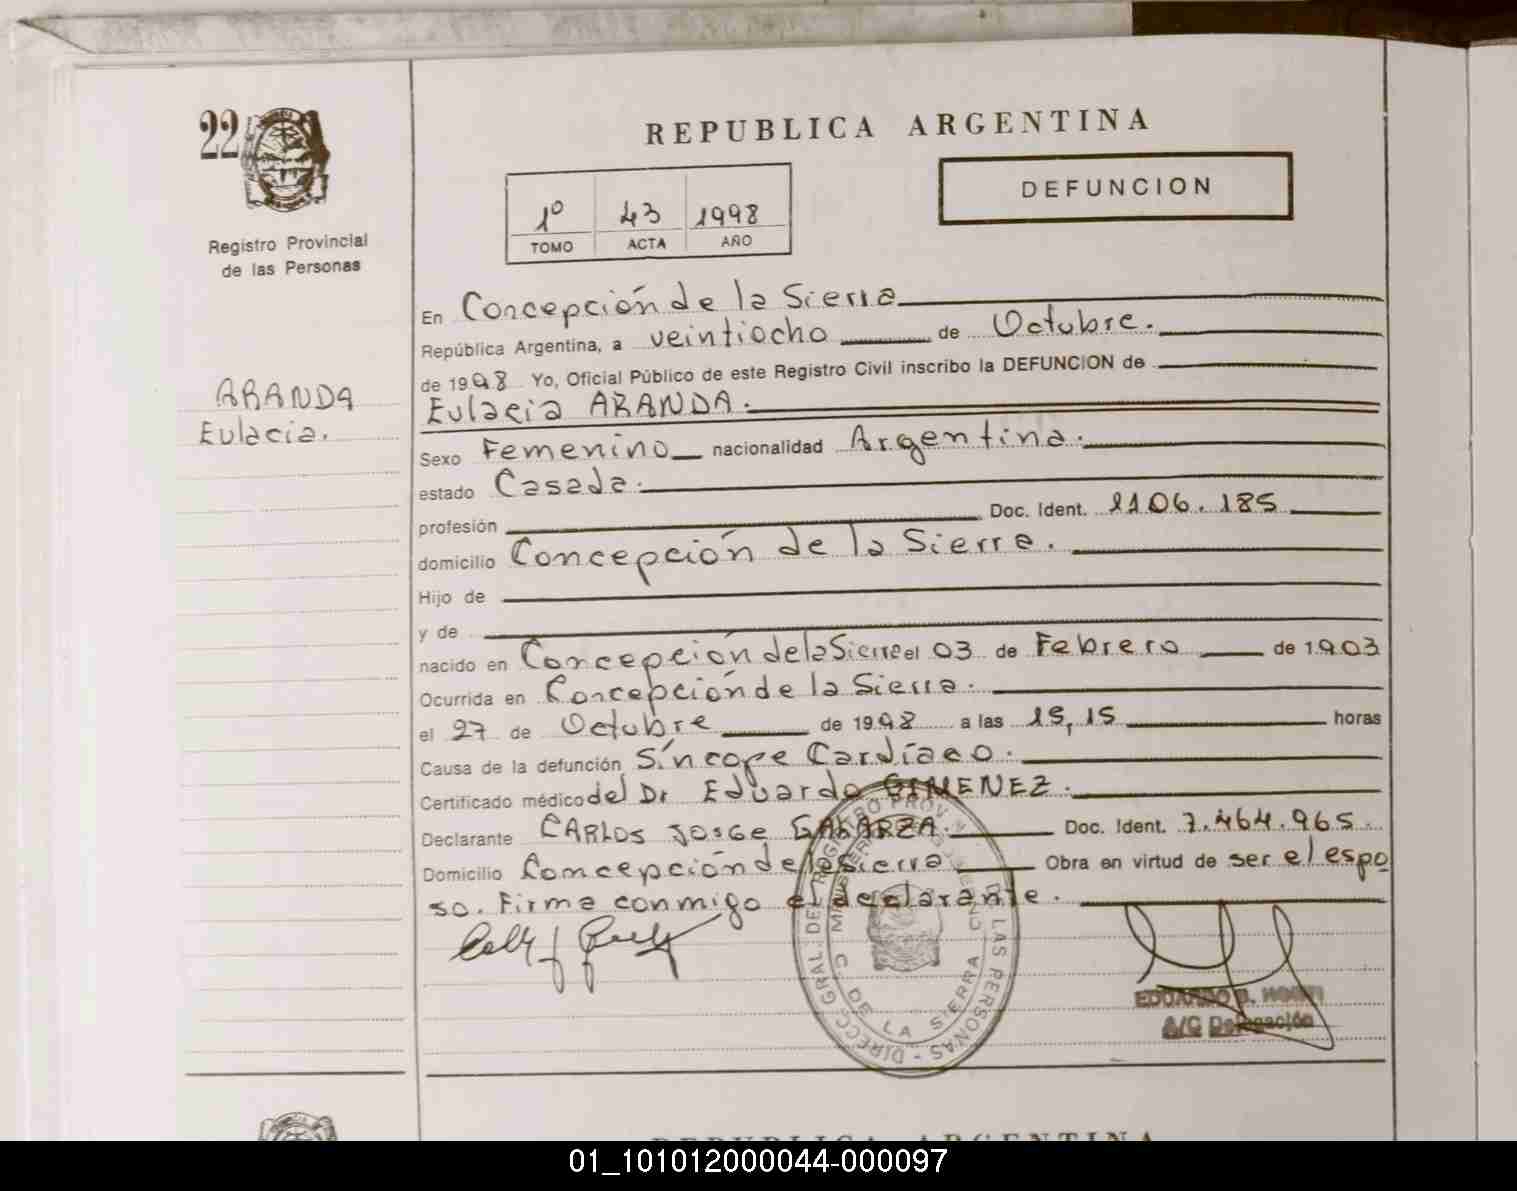 22
REPUBLICA ARGENTINA
DEFUNCION
1º 43 1998
TOMO ACTA AÑO
Registro Provincial
de las Personas
ARANDA
Eulacia.
En Concepción de la Sierra
República Argentina, a veintiocho de Octubre.
de 1998 Yo, Oficial Público de este Registro Civil inscribo la DEFUNCION de
Eulacia ARANDA.
Sexo Femenino nacionalidad Argentina.
estado Casada.
profesión Doc. Ident. 1106.185
domicilio Concepción de la Sierra.
Hijo de
y de
nacido en Concepción de la Sierra el 03 de Febrero de 1903
Ocurrida en Concepción de la Sierra.
el 27 de Octubre de 1998 a las 15,15 horas
Causa de la defunción Síncope Cardíaco.
Certificado médico del Dr Eduardo GIMENEZ.
Declarante CARLOS JORGE GALARZA. Doc. Ident. 7.464.965.
Domicilio Concepción de la Sierra Obra en virtud de ser el espo
so. Firma conmigo el declarante.
DIRECC. GRAL. DEL REGISTRO PROV. DE LAS PERSONAS
C. DE LA SIERRA
EDUARDO
A/C Delegación
REPUBLICA ARGENTINA
01_101012000044-000097